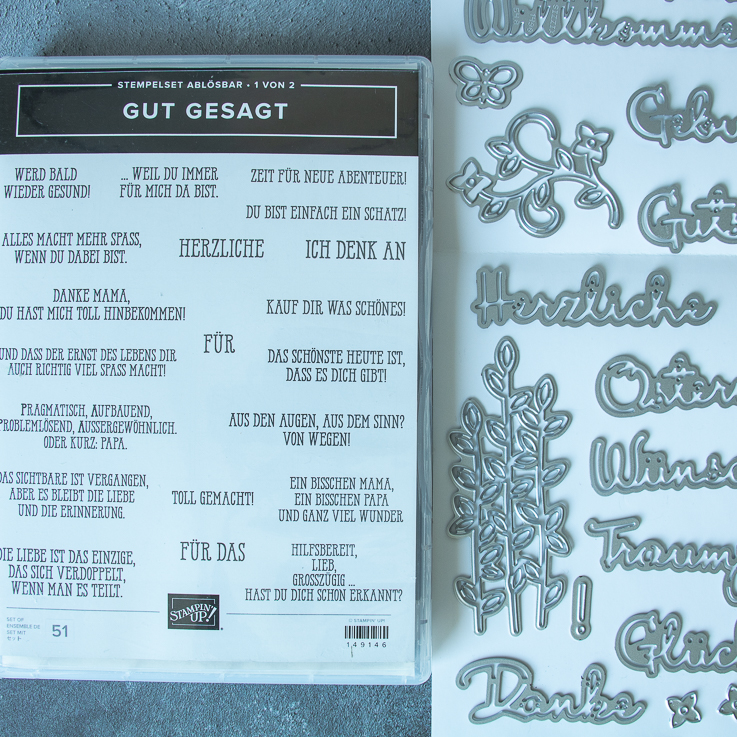 STEMPELSET ABLÖSBAR • 1 VON 2
GUT GESAGT
WERD BALD
WIEDER GESUND!
... WEIL DU IMMER
FÜR MICH DA BIST.
ZEIT FÜR NEUE ABENTEUER!
DU BIST EINFACH EIN SCHATZ!
ALLES MACHT MEHR SPASS,
WENN DU DABEI BIST.
HERZLICHE
ICH DENK AN
DANKE MAMA,
DU HAST MICH TOLL HINBEKOMMEN!
KAUF DIR WAS SCHÖNES!
FÜR
UND DASS DER ERNST DES LEBENS DIR
AUCH RICHTIG VIEL SPASS MACHT!
DAS SCHÖNSTE HEUTE IST,
DASS ES DICH GIBT!
PRAGMATISCH, AUFBAUEND,
PROBLEMLÖSEND, AUSSERGEWÖHNLICH.
ODER KURZ: PAPA.
AUS DEN AUGEN, AUS DEM SINN?
VON WEGEN!
DAS SICHTBARE IST VERGANGEN,
ABER ES BLEIBT DIE LIEBE
UND DIE ERINNERUNG.
TOLL GEMACHT!
EIN BISSCHEN MAMA,
EIN BISSCHEN PAPA
UND GANZ VIEL WUNDER
DIE LIEBE IST DAS EINZIGE,
DAS SICH VERDOPPELT,
WENN MAN ES TEILT.
FÜR DAS
HILFSBEREIT,
LIEB,
GROSSZÜGIG ...
HAST DU DICH SCHON ERKANNT?
SET OF
ENSEMBLE DE
SET MIT
セット
51
STAMPIN' UP!
© STAMPIN' UP!
149146
Willkomme
Gebu
Gute
Herzliche
Oster
Wünsc
Traum
!
Glück
Danke